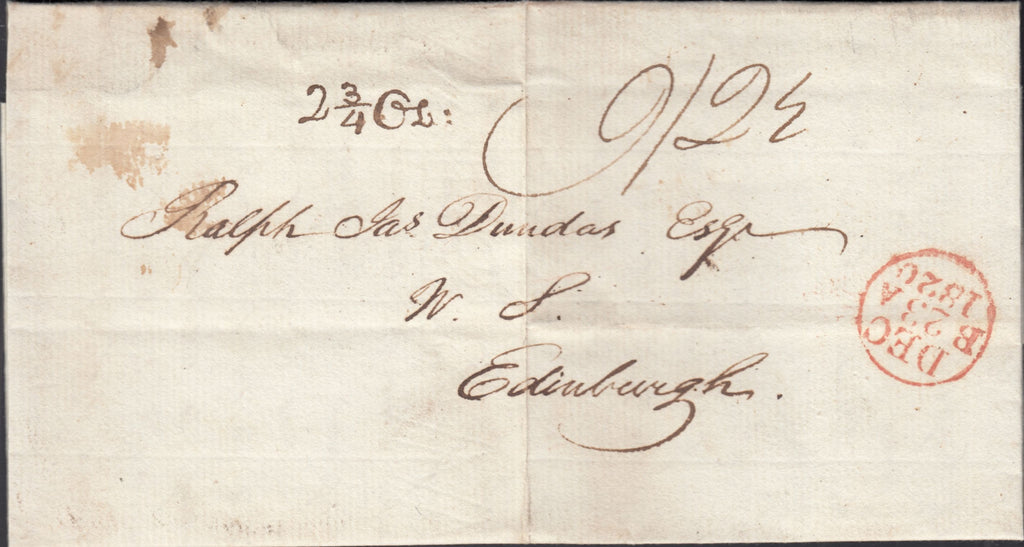 2 3/4 Oz:
Ralph Jas Dundas Esqr
W. S.
Edinburgh.
E
DEC
A
1820